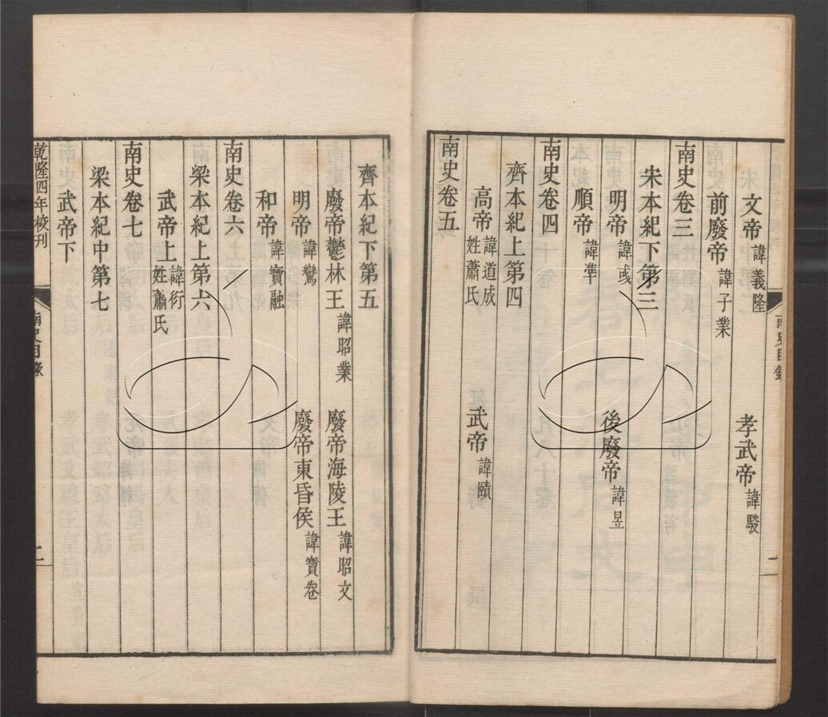 文帝諱義隆 孝武帝諱駿
前廢帝諱子業
南史卷三
宋本紀下第三
明帝諱彧 後廢帝諱昱
順帝諱準
南史卷四
齊本紀上第四
高帝諱道成姓蕭氏 武帝諱賾
南史卷五
齊本紀下第五
廢帝鬱林王諱昭業 廢帝海陵王諱昭文
明帝諱鸞 廢帝東昏侯諱寶卷
和帝諱寶融
南史卷六
梁本紀上第六
武帝上諱衍姓蕭氏
南史卷七
梁本紀中第七
武帝下
乾隆四年校刊 南史目錄 二